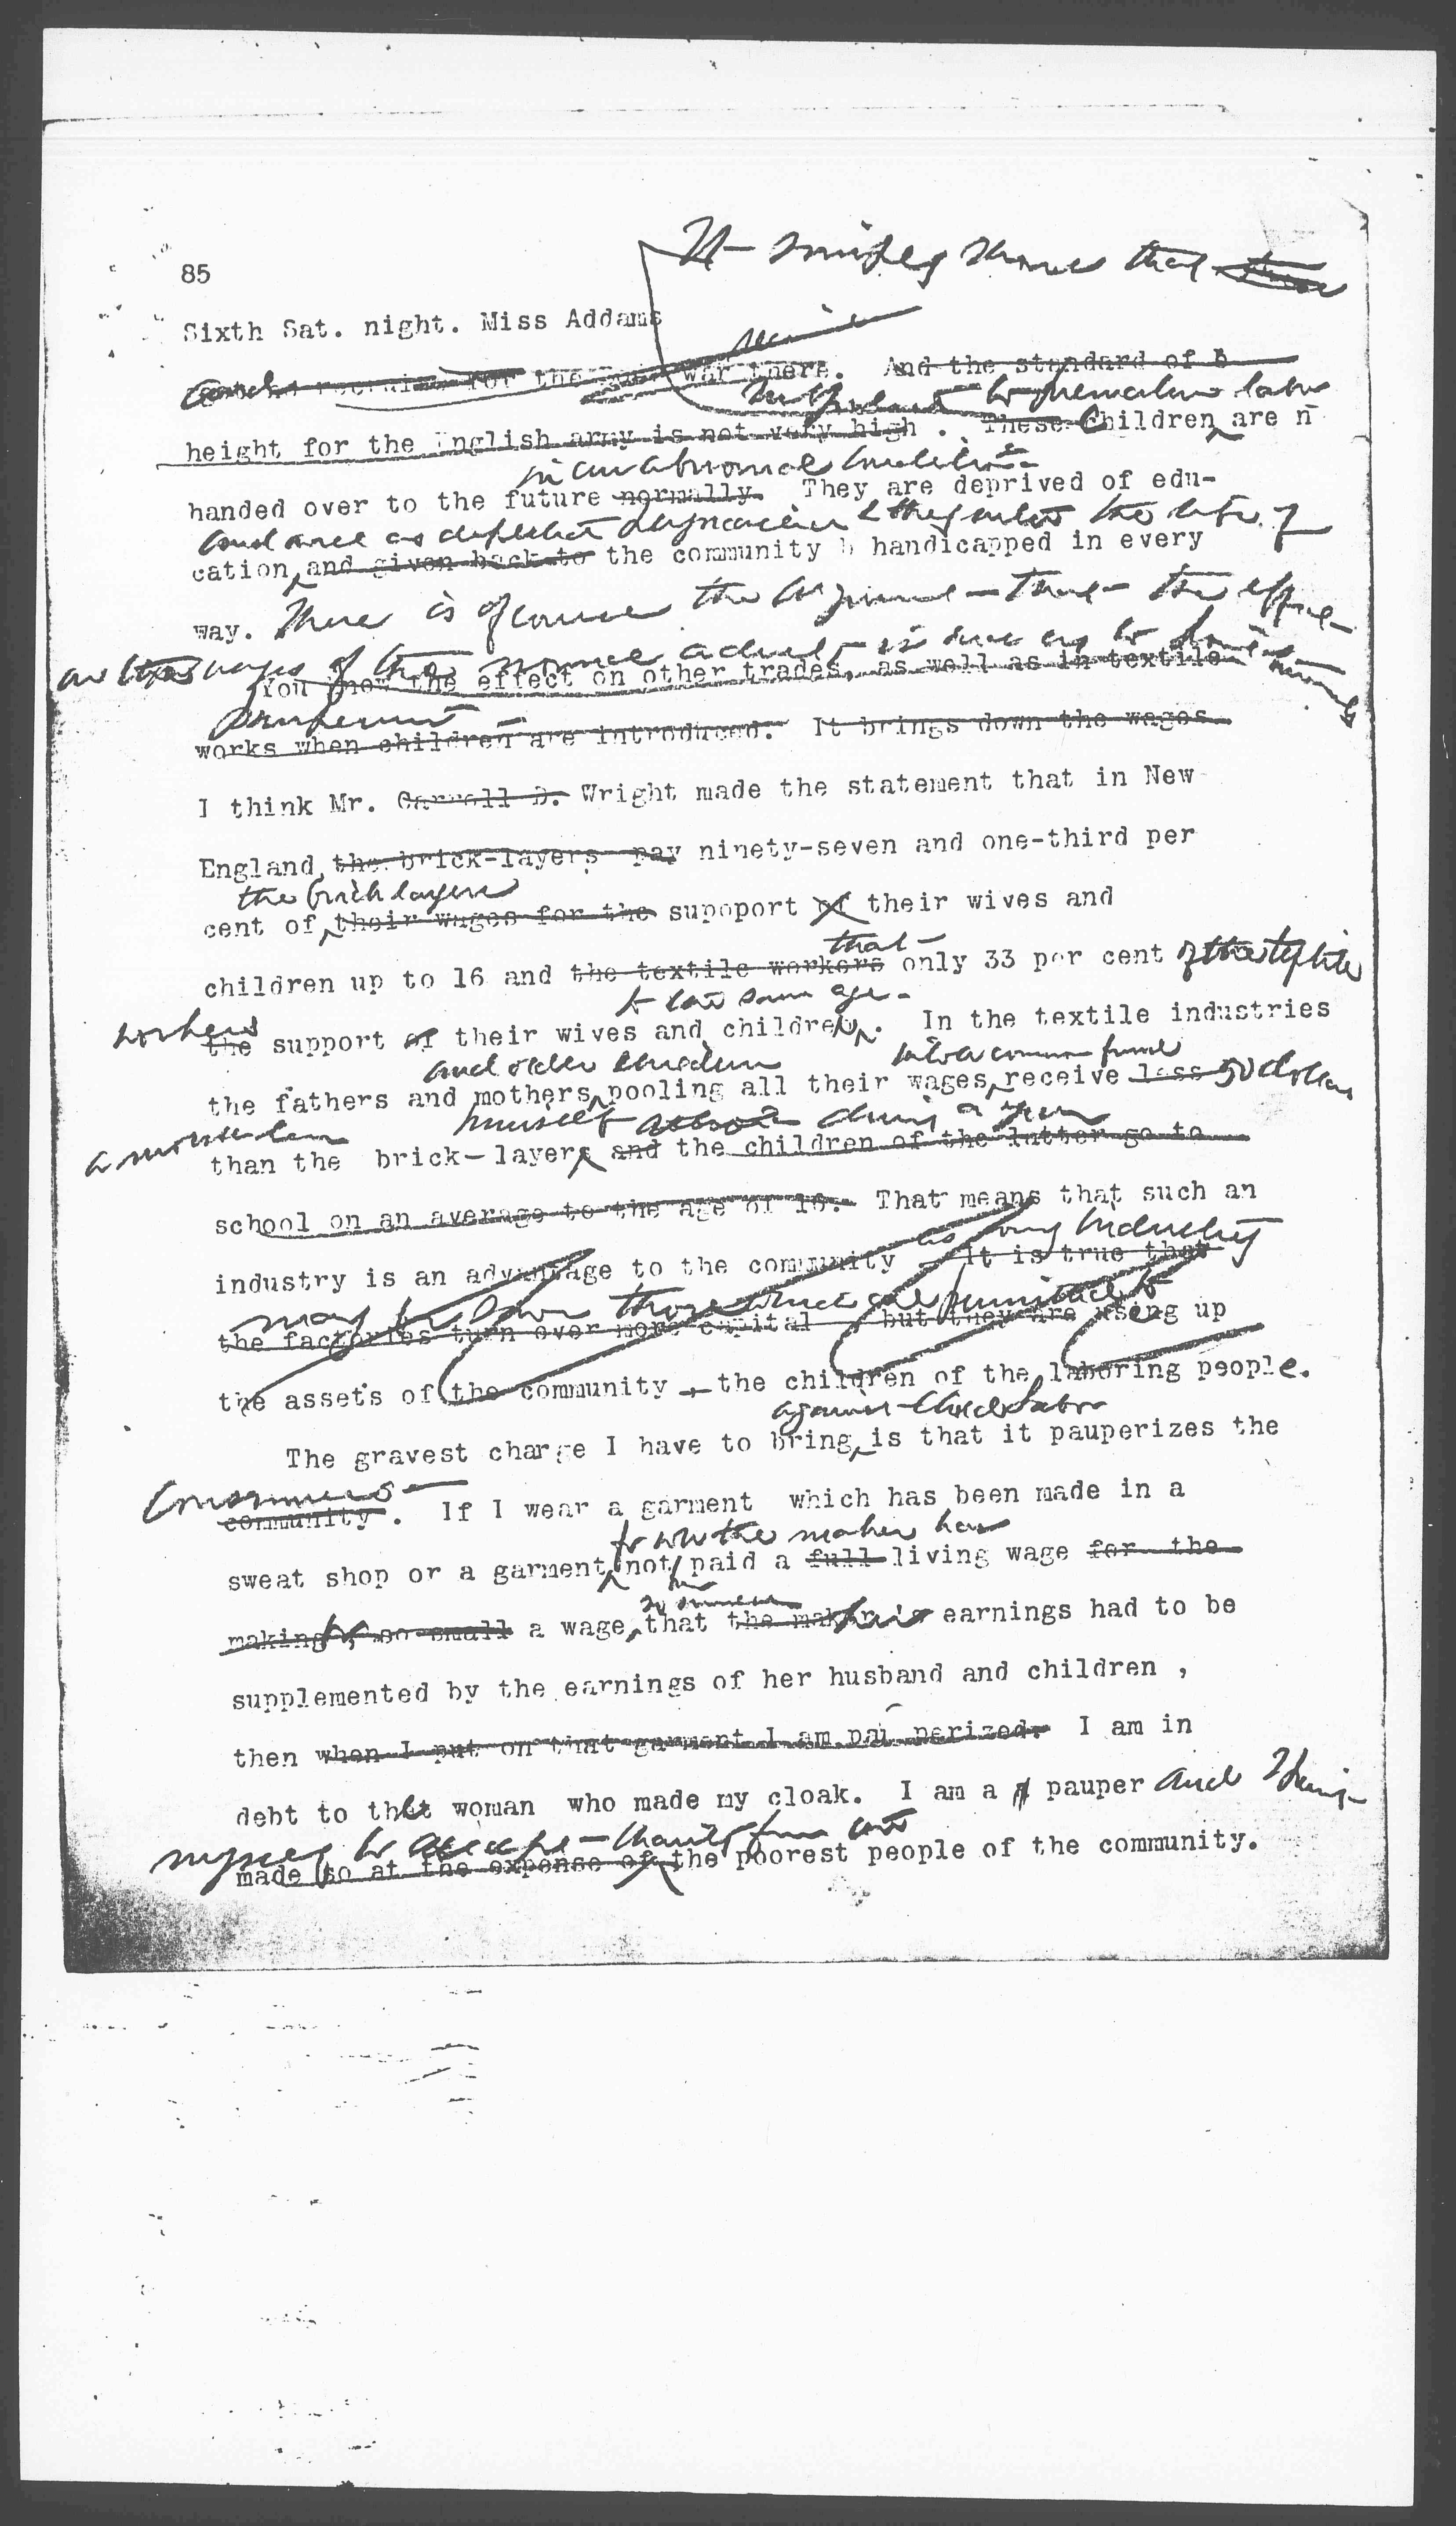 85
It simply shows that
Sixth Sat. night. Miss Addams
for the war there. And the standard of
subjected to premature labor
height for the English army is not very high. These Children are n
in an abnormal condition
handed over to the future normally. They are deprived of edu-
and are as depleted & they enter the life of
cation and given back to the community b handicapped in every
way. There is of course the argument that the effect
on wages of the adult is such as to
You know the effect on other trades, as well as in textile
works when children are introduced. It brings down the wages
I think Mr. Carroll D. Wright made the statement that in New
England, the brick-layers pay ninety-seven and one-third per
the brick layers
cent of their wages for the supoport of their wives and
that
children up to 16 and the textile workers only 33 per cent of the textile
to the same age
workers the support of their wives and children. In the textile industries
and older children into a common fund
the fathers and mothers pooling all their wages, receive less 50 dollars
himself during a year
a month less than the brick-layers and the children of the latter go to
school on an average to the age of 16. That means that such an
industry
industry is an advantage to the community It is true that
may be those which are permitted to
the factories turn over more capital but they are using up
the assets of the community - the children of the laboring people.
against Child Labor
The gravest charge I have to bring, is that it pauperizes the
consumers
community. If I wear a garment which has been made in a
for which the maker has
sweat shop or a garment not paid a full living wage for the
so small
making, so small a wage, that the maker's her earnings had to be
supplemented by the earnings of her husband and children ,
then when I put on that garment I am pauperized. I am in
debt to that woman who made my cloak. I am a pauper and I bring
myself to accept charity from the
made so at the expense of the poorest people of the community.